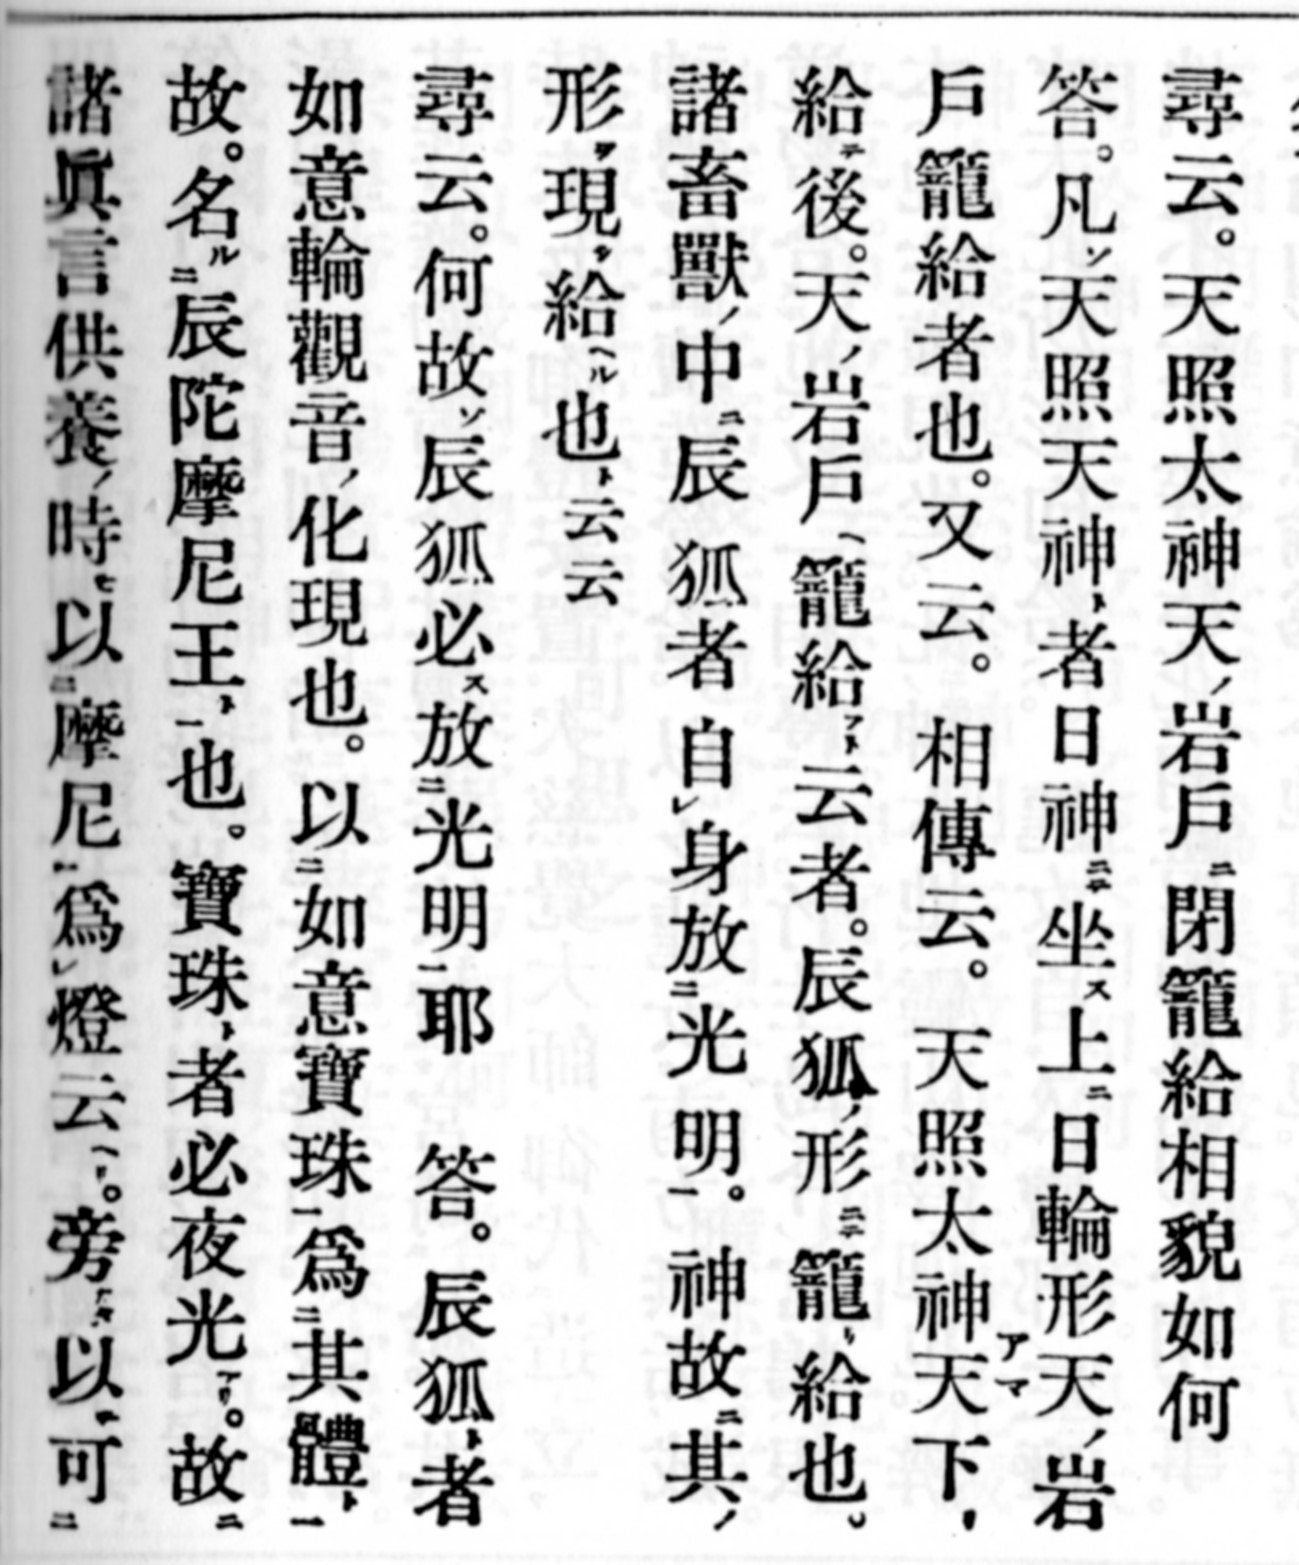 尋云。天照太神天ノ岩戶ニ閉籠給相貌如何
答。凡ソ天照天神ト者日神ニテ坐ス上ニ日輪形天ノ岩
戶籠給者也。又云。相傳云。天照太神天アマ下リ
給テ後。天ノ岩戶ヘ籠給フト云者。辰狐ノ形ニテ籠リ給也。
諸畜獸ノ中ニ辰狐者自レ身放二光明一。神故ニ其ノ
形ヲ現シ給ヘル也ト云云
尋云。何故ソ辰狐必ス放二光明一耶 答。辰狐ト者
如意輪觀音ノ化現也。以二如意寶珠一爲二其體ト一
故。名ル二辰陀摩尼王ト一也。寶珠ト者必夜光アリ。故ニ
諸眞言供養ノ時モ以二摩尼ヲ爲レ燈云ヘリ。旁以可二